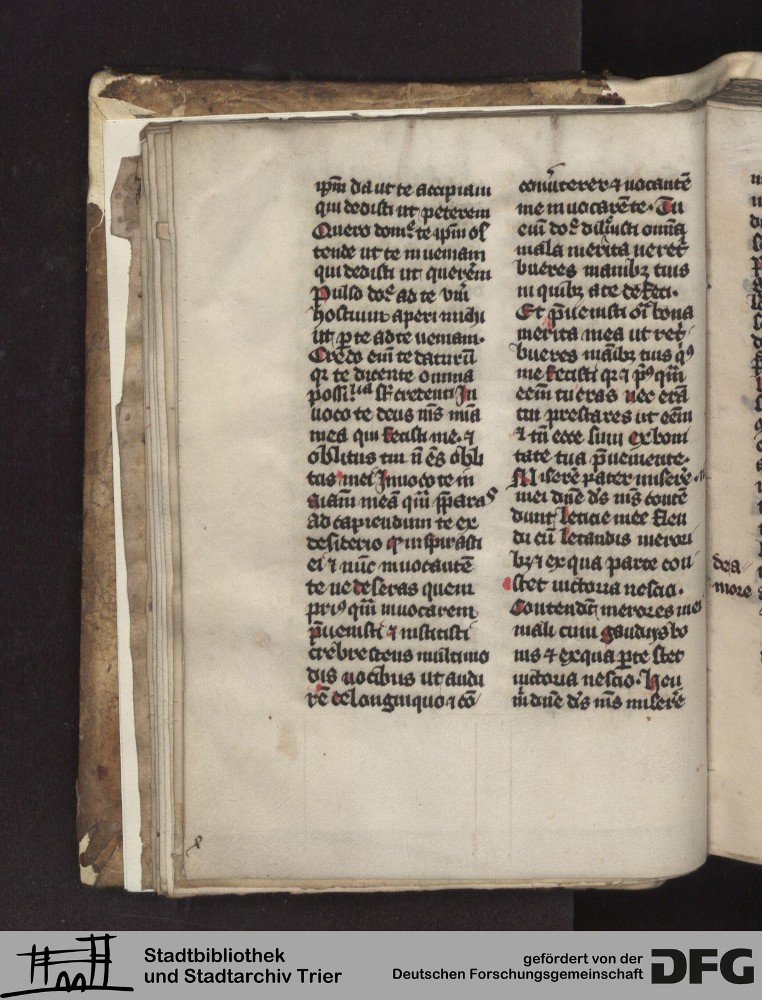 ip̅m da ut te accipiam
qui dedisti ut peterem
Quero domͤ te ip̅m os
tende ut te inueniam
qui dedisti ut querem̅
Pulso doͤ ad te uni
hostium aperi michi
ut p̱ te ad te ueniam.
Credo eni̅ te daturu̅
q̅ te dicente omnia
possiͥˡⁱᵃ s̅t credenti In
uoco te deus n̅s mi̅a
mea qui fecisti me. ⁊
oblitus tui n̅ es obli
tus mei Inuoco te in
a̅iam mea̅ qua̅
ad capiendum te ex
desiderio inspirasti
ei ⁊ nu̅c inuocante̅
te ne deseras quem
priꝰ qua̅ inuocarem
p̅uenisti ⁊ institisti
crebrescens multimo
dis uocibus ut audi
re̅ de longinquo ⁊ co̅
conu̅terer ⁊ uocante̅
me inuocare̅ te. Tu
eni̅ doͤ omnia̅
mala merita
bueres manibꝫ tuis
in quibꝫ a te defeci.
Et p̅uenisti oi̅ bona
merita mea ut ret̅
bueres manibꝫ tuis qͥꝰ
me fecisti qꝛ ⁊ pͥꝰ qua̅
ee̅m tu eras nec era̅
cui prestares ut ee̅m
⁊ tn̅ ecce sum ex boni
tate tua p̅ueniente.
Misere̅ pater misere̅
mei d̅ne d̅s m̅s conte̅
dunt leticie mee flen
de cu̅ letandis merori
bꝫ ⁊ ex qua parte con
stet uictoria nescio.
Contendu̅t merores mei
mali cum gaudijs bo
nis ⁊ ex qua p̱te stet
uictoria nescio. Heu
m̅ d̅ne d̅s m̅s misere̅
de a
more
Stadtbibliothek
und Stadtarchiv Trier
gefördert von der
Deutschen Forschungsgemeinschaft
DFG